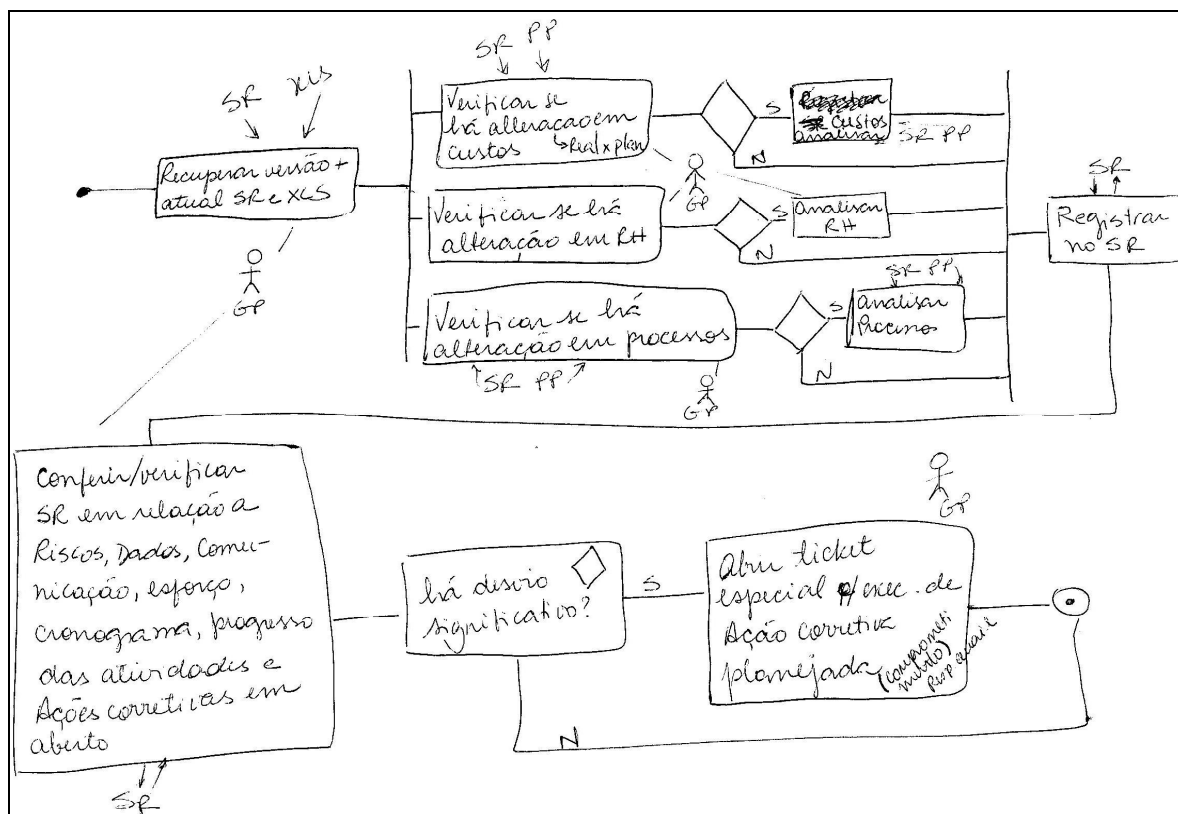 SR XLS
Recuperar versão +
atual SR e XLS
GP
SR PP
Verificar se
há alteracao em
custos
↳Real x plan
S
Custos
analisar
SR PP
N
GP
Verificar se há
alteração em RH
S
Analisar
RH
N
Verificar se há
alteração em processos
SR PP
GP
S
SR PP
Analisar
Processos
N
SR
Registrar
no SR
Conferir/verificar
SR em relação a
Riscos, Dados, Comu-
nicação, esforço,
cronograma, progresso
das atividades e
Ações corretivas em
aberto
SR
há desvio
significativo?
S
N
GP
Abrir ticket
especial p/ exec. de
Ação corretiva
planejada
(comprometi
mento)